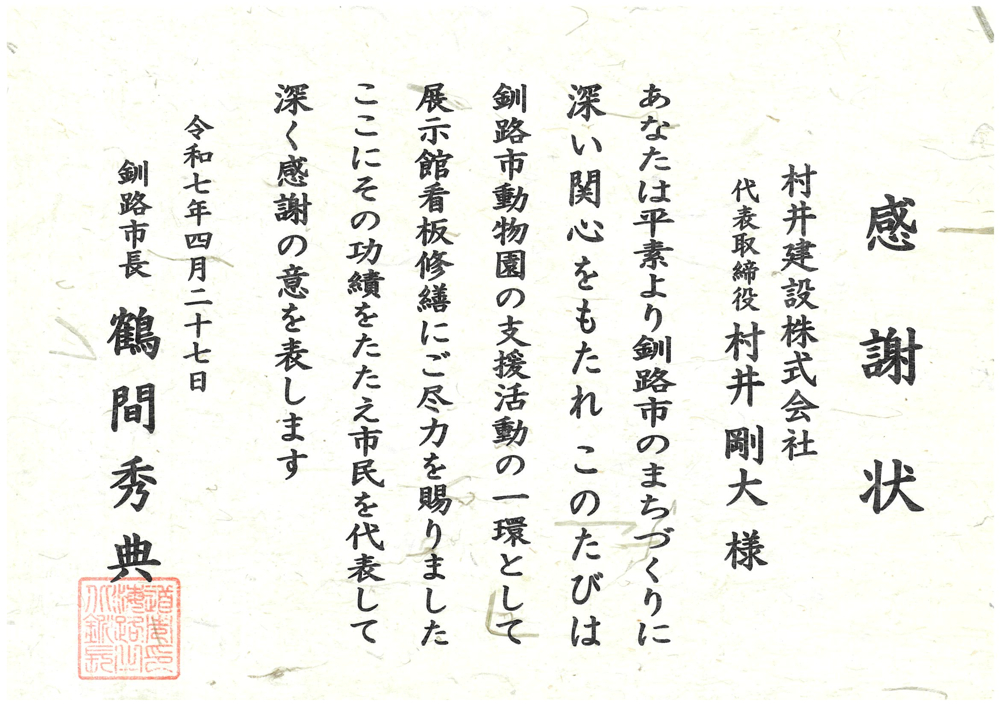 感謝状
村井建設株式会社
代表取締役 村井 剛大 様
あなたは平素より釧路市のまちづくりに
深い関心をもたれ このたびは
釧路市動物園の支援活動の一環として
展示館看板修繕にご尽力を賜りました
ここにその功績をたたえ市民を代表して
深く感謝の意を表します
令和七年四月二十七日
釧路市長 鶴間秀典